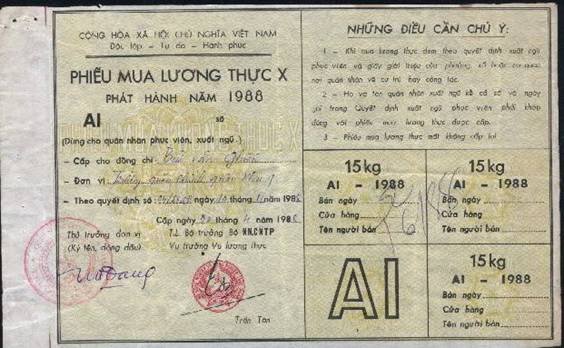 CỘNG HÒA XÃ HỘI CHỦ NGHĨA VIỆT NAM
Độc lập - Tự do - Hạnh phúc
PHIẾU MUA LƯƠNG THỰC X
PHÁT HÀNH NĂM 1988
AI số
(Dùng cho quân nhân phục viên, xuất ngũ)
- Cấp cho đồng chí
- Đơn vị
- Theo quyết định số ngày tháng năm 198
Cấp ngày tháng 4 năm 198
Thủ trưởng đơn vị
(Ký tên, đóng dấu)
T.L Bộ trưởng Bộ NN.CNTP
Vụ trưởng Vụ lương thực
Trần Tân
NHỮNG ĐIỀU CẦN CHÚ Ý:
1 - Khi mua lương thực đem theo quyết định xuất ngũ
phục viên và giấy giới thiệu của phường, xã hoặc cơ quan
nơi quân nhân về cư trú hay công tác.
2 - Họ và tên quân nhân xuất ngũ kể cả số và ngày
ghi trong Quyết định xuất ngũ phục viên phải khớp
đúng với phiếu mua lương thực được cấp.
3 - Phiếu mua lương thực mất không cấp lại
15kg
AI - 1988
Bán ngày
Cửa hàng
Tên người bán
15kg
AI - 1988
Bán ngày
Cửa hàng
Tên người bán
AI
15kg
AI - 1988
Bán ngày
Cửa hàng
Tên người bán